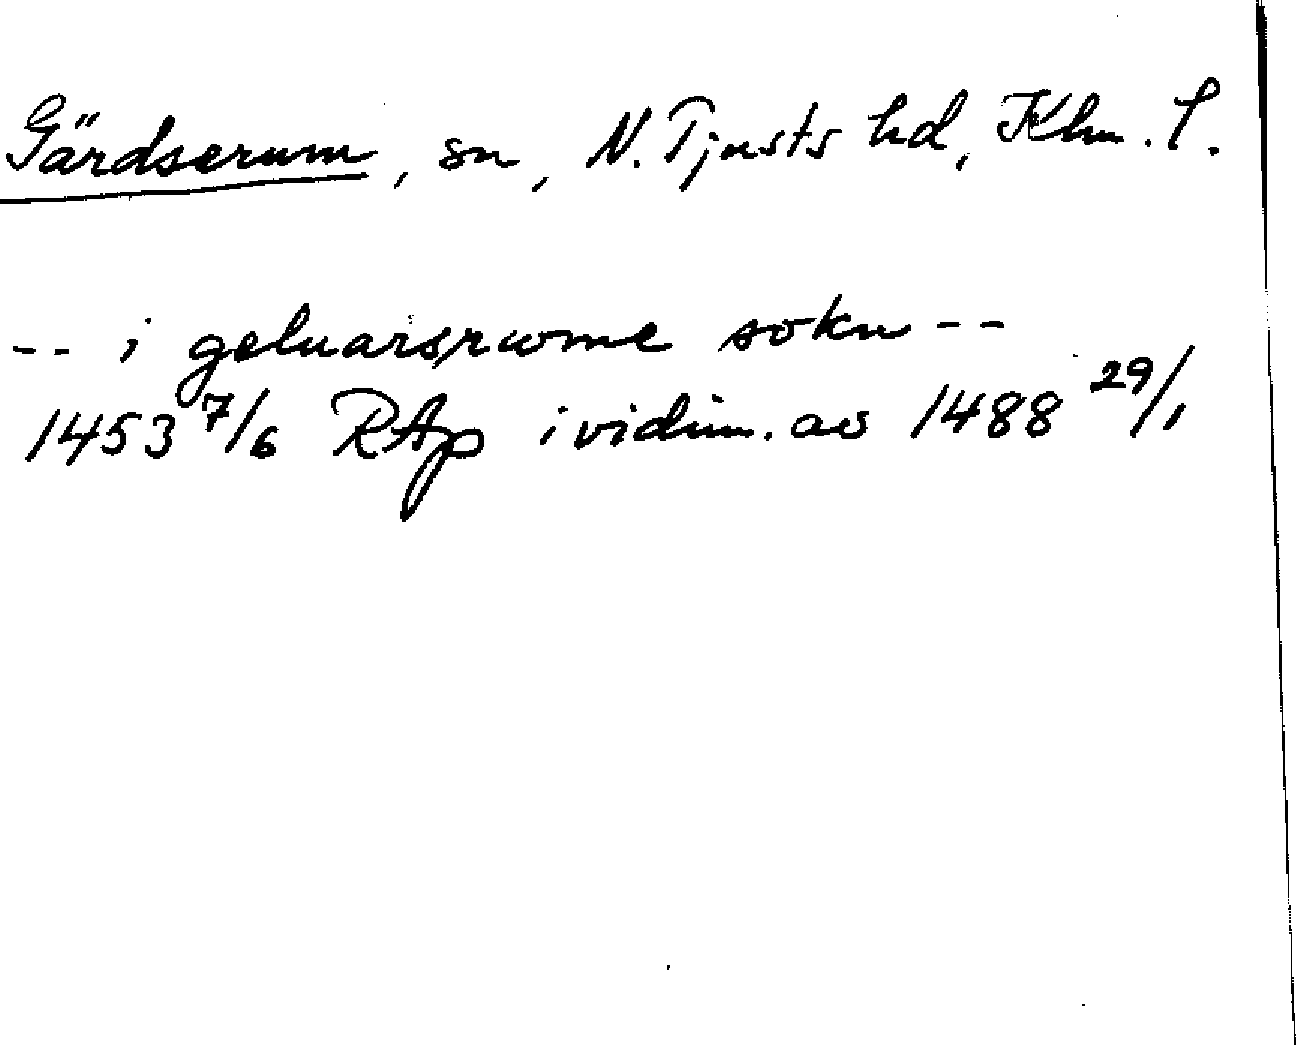 Gärdserum, sn, N. Tjusts hd, Klm. l.
-- i geluarsrwme sokn --
1453 7/6 RAp i vidim. av 1488 29/1